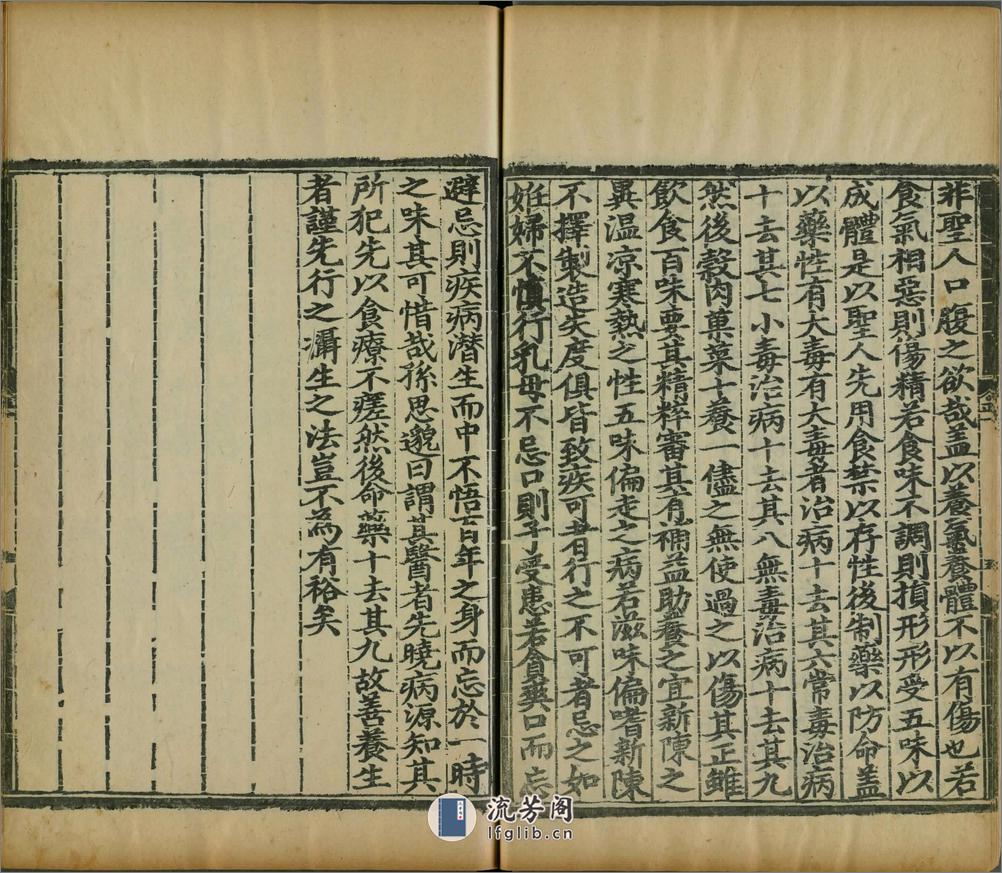 非聖人口腹之欲哉盖以養氣養體不以有傷也若
食氣相惡則傷精若食味不調則損形形受五味以
成體是以聖人先用食禁以存性後制藥以防命盖
以藥性有大毒有大毒者治病十去其六常毒治病
十去其七小毒治病十去其八無毒治病十去其九
然後穀肉菓菜十養一儘之無使過之以傷其正雖
飲食百味要其精粹審其有補益助養之宜新陳之
異温凉寒熱之性五味偏走之病若滋味偏嗜新陳
不擇製造失度俱皆致疾可者行之不可者忌之如
妊婦不慎行乳母不忌口則子受患若貪爽口而忘
避忌則疾病潜生而中不悟百年之身而忘於一時
之味其可惜哉孫思邈曰謂其醫者先曉病源知其
所犯先以食療不瘥然後命藥十去其九故善養生
者謹先行之灄生之法豈不為有裕矣
流芳阁
lfglib.cn